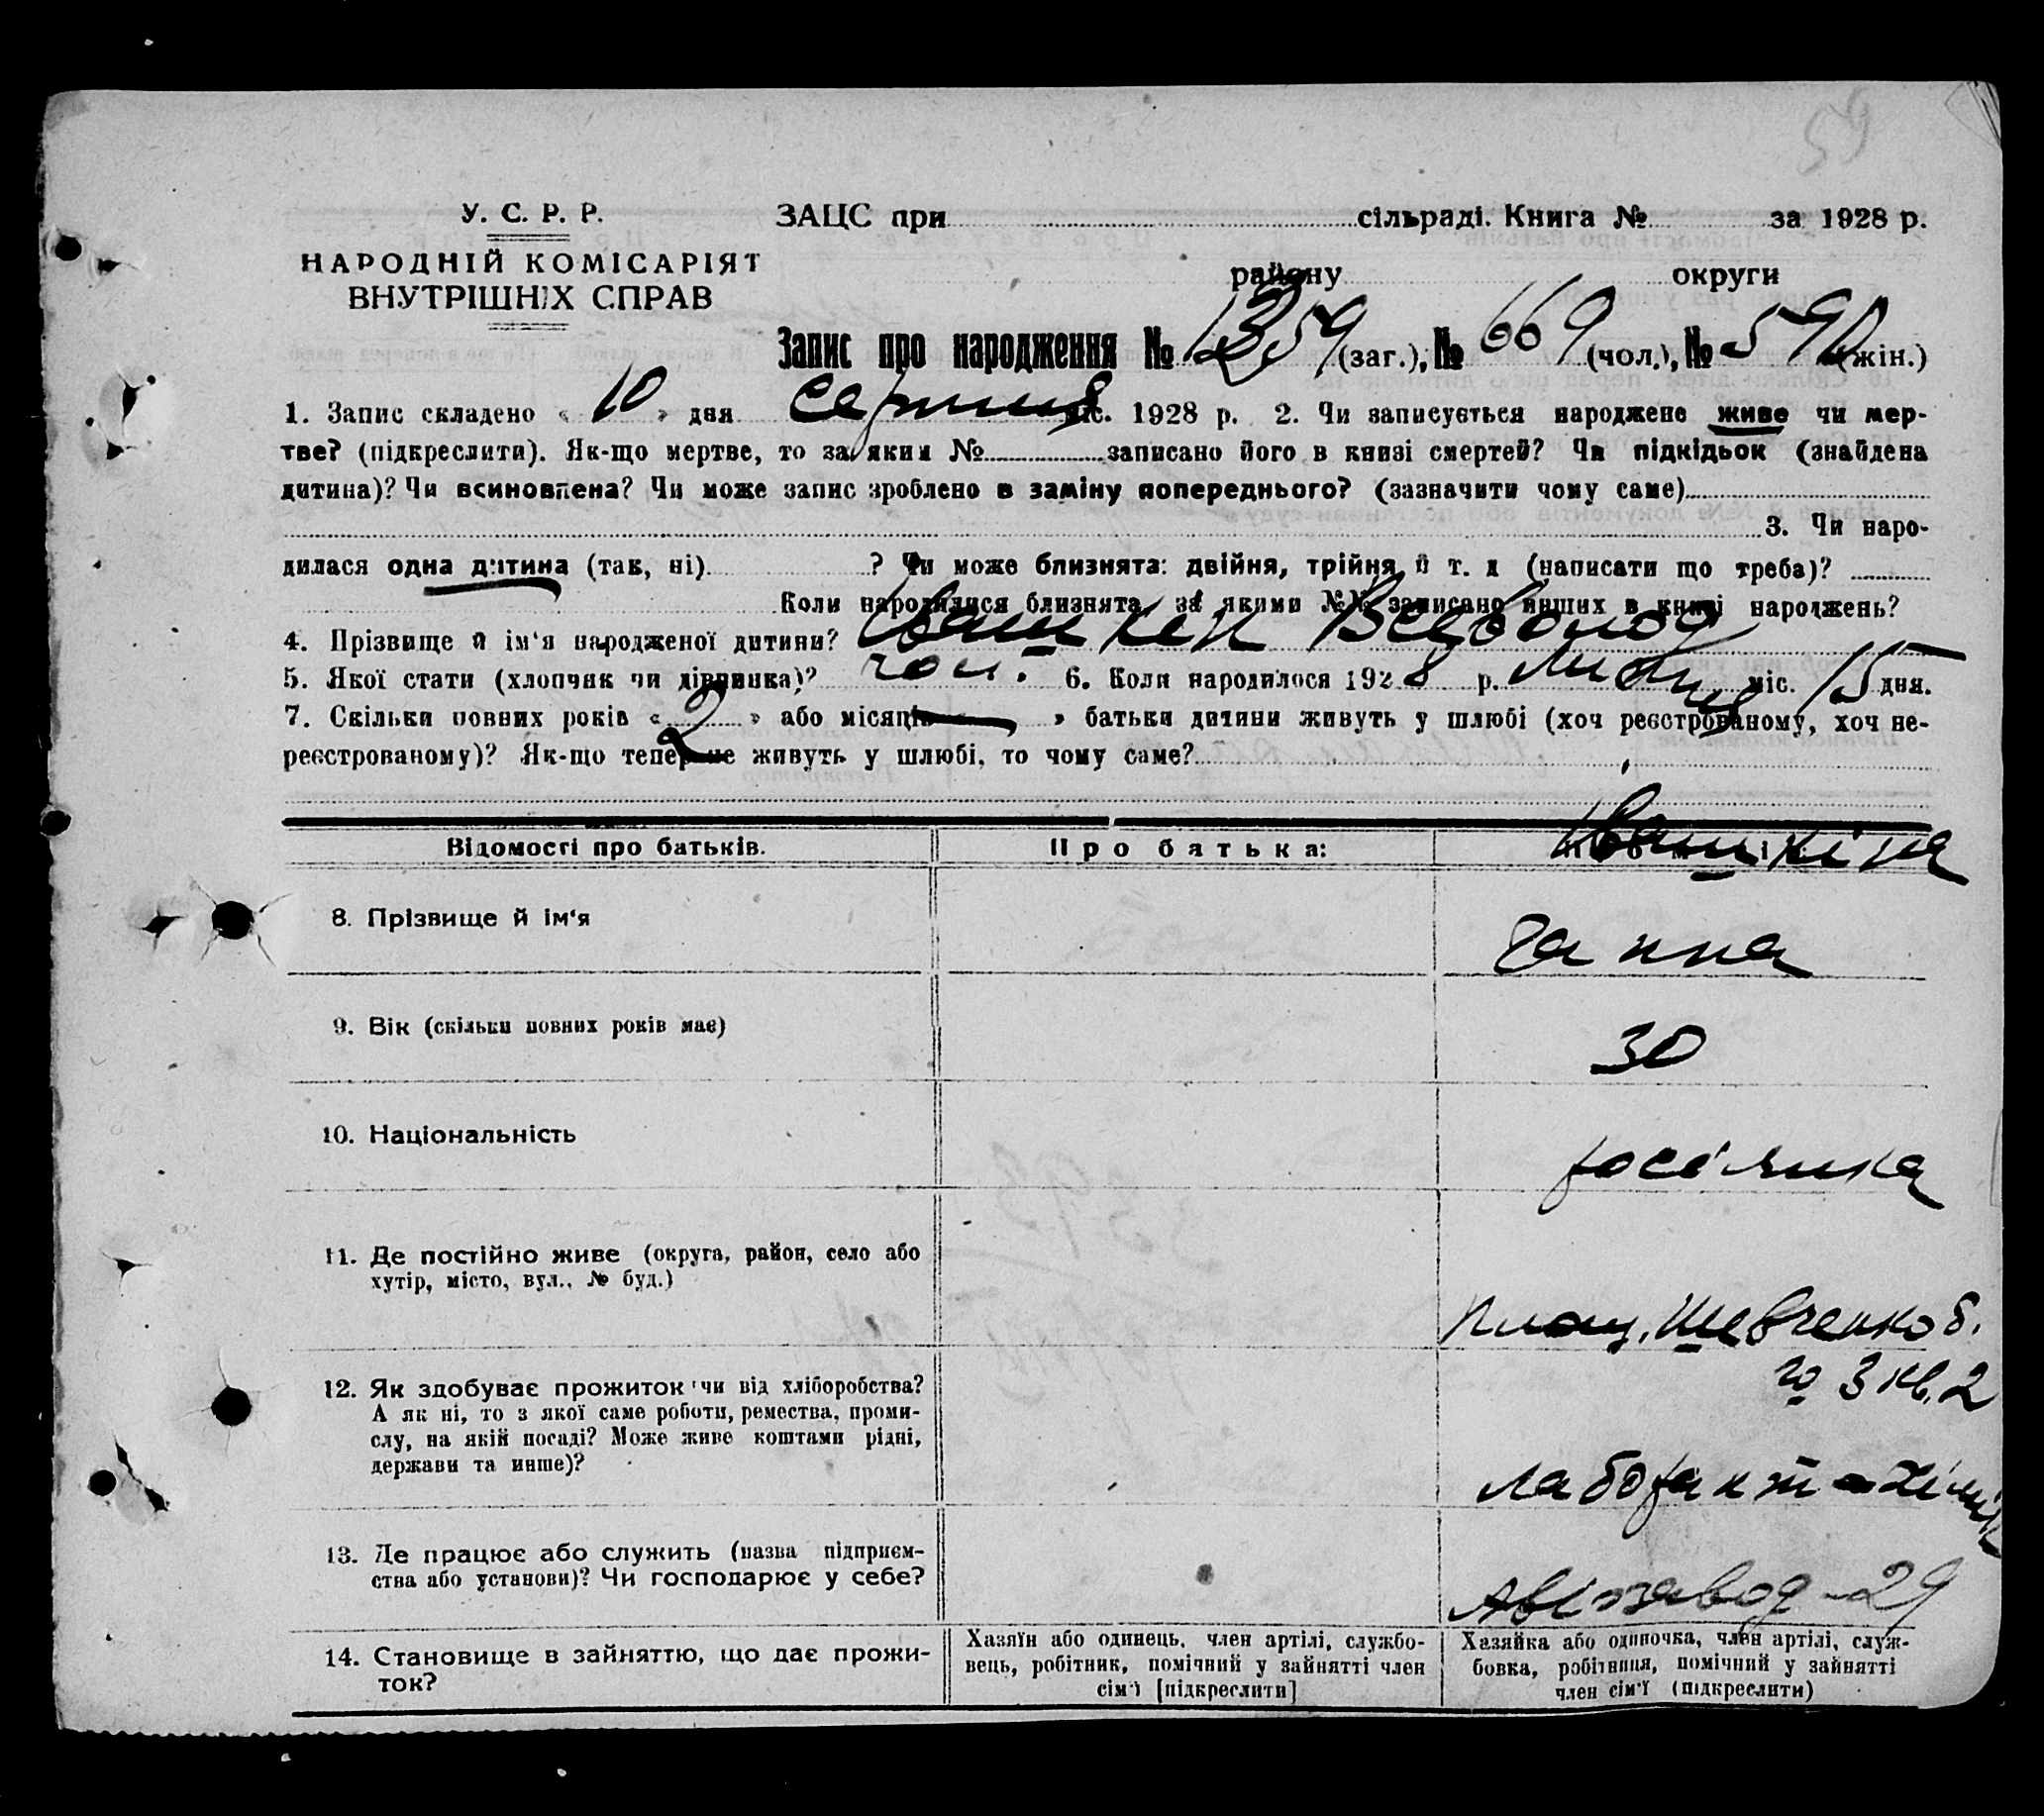 59
У. С. Р. Р.
НАРОДНІЙ КОМІСАРІЯТ
ВНУТРІШНІХ СПРАВ
ЗАЦС при сільраді. Книга № за 1928 р.
району округи
Запис про народження № 1359 (заг.), № 669 (чол.), № 590 (жін.)
1. Запис складено « 10 » дня серпня міс. 1928 р. 2. Чи записується народжене живе чи мер-
тве? (підкреслити). Як-що мертве, то за яким № записано його в книзі смертей? Чи підкідьок (знайдена
дитина)? Чи всиновлена? Чи може запис зроблено в заміну попереднього? (зазначити чому саме)
3. Чи наро-
дилася одна дитина (так, ні) ? Чи може близнята: двійня, трійня й т. д (написати що треба)?
Коли народилися близнята, за якими №№ записано инших в книзі народжень?
4. Прізвище й ім‘я народженої дитини? Івашкін Всеволод
5. Якої стати (хлопчик чи дівчинка)? чол. 6. Коли народилося 1928 р. липня міс. 15 дня.
7. Скільки повних років « 2 » або місяців « — » батьки дитини живуть у шлюбі (хоч реєстрованому, хоч не-
реєстрованому)? Як-що тепер не живуть у шлюбі, то чому саме?
Відомості про батьків. Про батька:
Івашкіна
8. Прізвище й ім‘я Ганна
9. Вік (скільки повних років має) 30
10. Національність росіянка
11. Де постійно живе (округа, район, село або
хутір, місто, вул., № буд.)
площ. Шевченко б.
№ 3 кв. 2
12. Як здобуває прожиток чи від хліборобства?
А як ні, то з якої саме роботи, ремества, проми-
слу, на якій посаді? Може живе коштами рідні,
держави та инше)?
лаборант-хімік
13. Де працює або служить (назва підприєм-
ства або установи)? Чи господарює у себе?
Авіозавод-29
14. Становище в зайняттю, що дає прожи-
ток?
Хазяїн або одинець, член артілі, службо-
вець, робітник, помічний у зайнятті член
сім‘ї [підкреслити]
Хазяйка або одиночка, член артілі, служ-
бовка, робітниця, помічний у зайнятті
член сім‘ї (підкреслити)